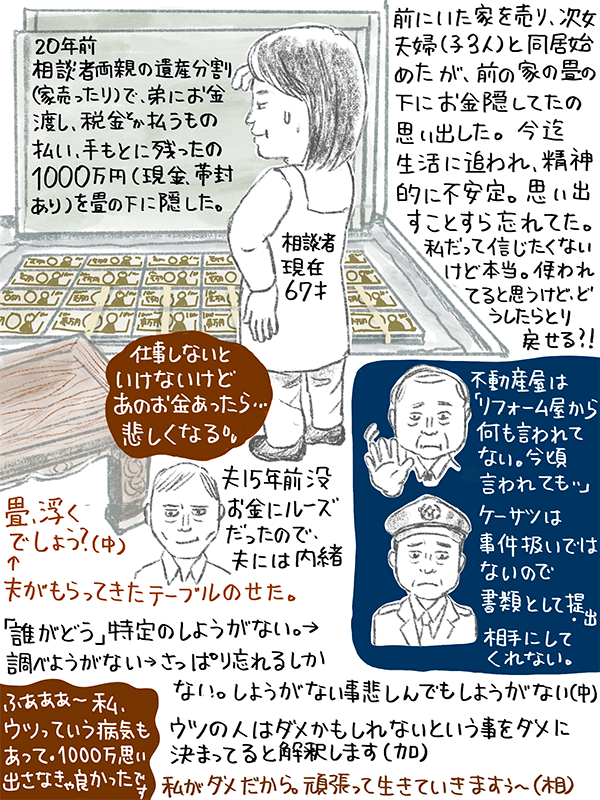 20年前
相談者両親の遺産分割
(家売ったり)で、弟にお金
渡し、税金とか払うもの
払い、手もとに残ったの
1000万円(現金、帯封
あり)を畳の下に隠した。
前にいた家を売り、次女
夫婦(子3人)と同居始
めたが、前の家の畳の
下にお金隠してたの
思い出した。今迄
生活に追われ、精神
的に不安定。思い出
すことすら忘れてた。
私だって信じたくない
けど本当。使われ
てると思うけど、ど
うしたらとり
戻せる?!
相談者
現在
67才
仕事しないと
いけないけど
あのお金あったら…
悲しくなる。
夫15年前没
お金にルーズ
だったので、
夫には内緒
畳、浮く
でしょう?(中)
↑
夫がもらってきたテーブルのせた。
不動産屋は
「リフォーム屋から
何も言われて
ない。今頃
言われても…」
ケーサツは
事件扱いでは
ないので
書類として提出
相手にして
くれない。
「誰がどう」特定のしようがない。→
調べようがない→さっぱり忘れるしか
ない。しようがない事悲しんでもしようがない(中)
ふあああ〜私、
ウツっていう病気も
あって。1000万思い
出さなきゃ良かったです
ウツの人はダメかもしれないという事をダメに
決まってると解釈します(加)
私がダメだから。頑張って生きていきますぅ〜(相)